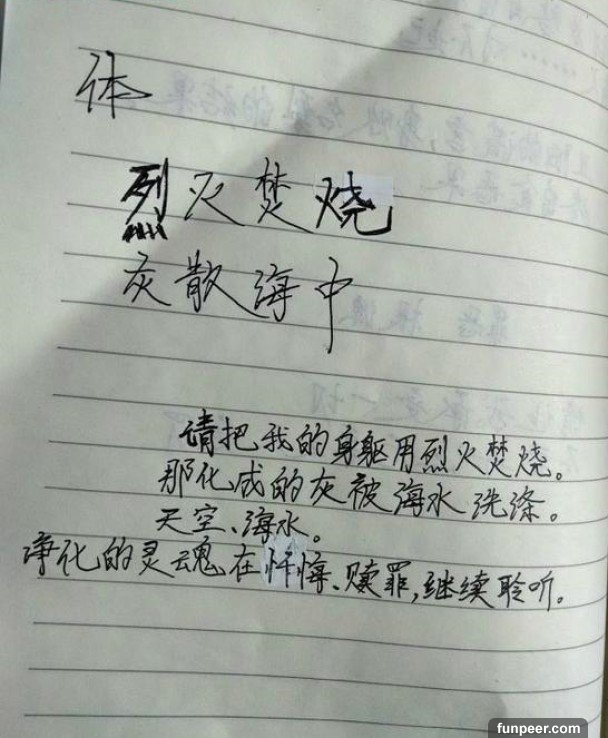 体
烈火焚烧
灰散海中
请把我的身躯用烈火焚烧。
那化成的灰被海水洗涤。
天空、海水。
净化的灵魂在忏悔、赎罪,继续聆听。
funpeer.com